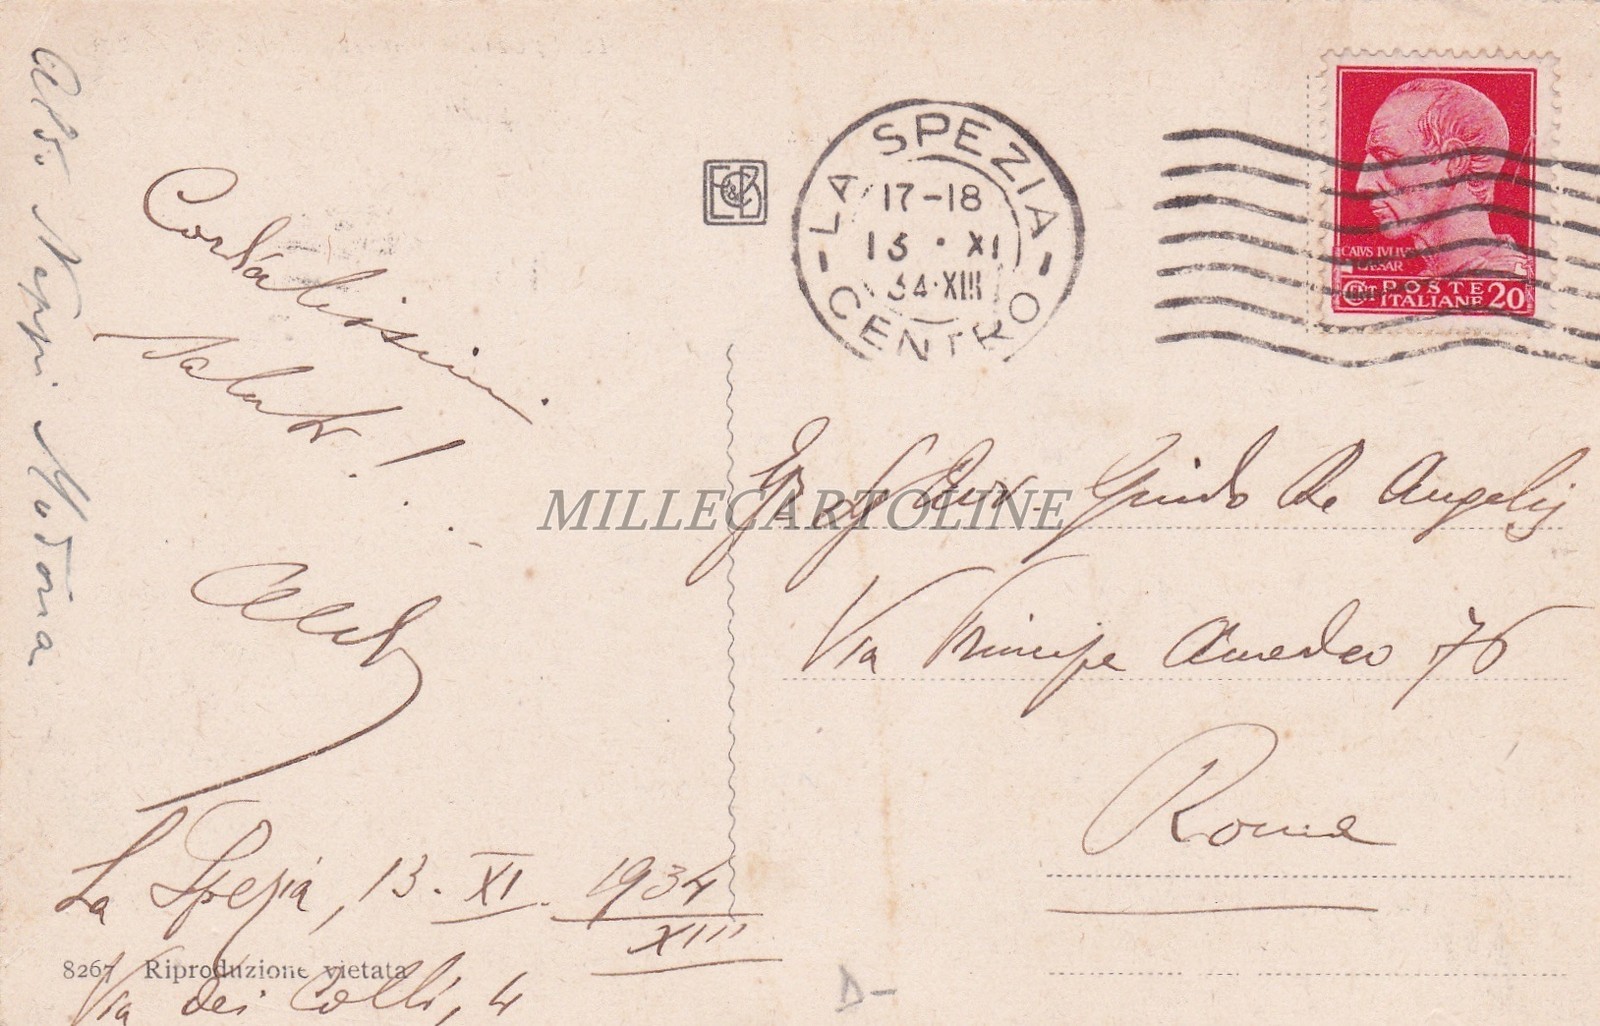 Cordialissimi
saluti!
La Spezia, 13. XI. 1934
XIII
Via dei Colli, 4
8267 Riproduzione vietata
LA SPEZIA
17-18
13 · XI
34·XIII
CENTRO
CAIVS IVLIVS
CAESAR
POSTE
CENT ITALIANE 20
MILLECARTOLINE
Guido De Angelis
Via Principe Amedeo 76
Roma
D-